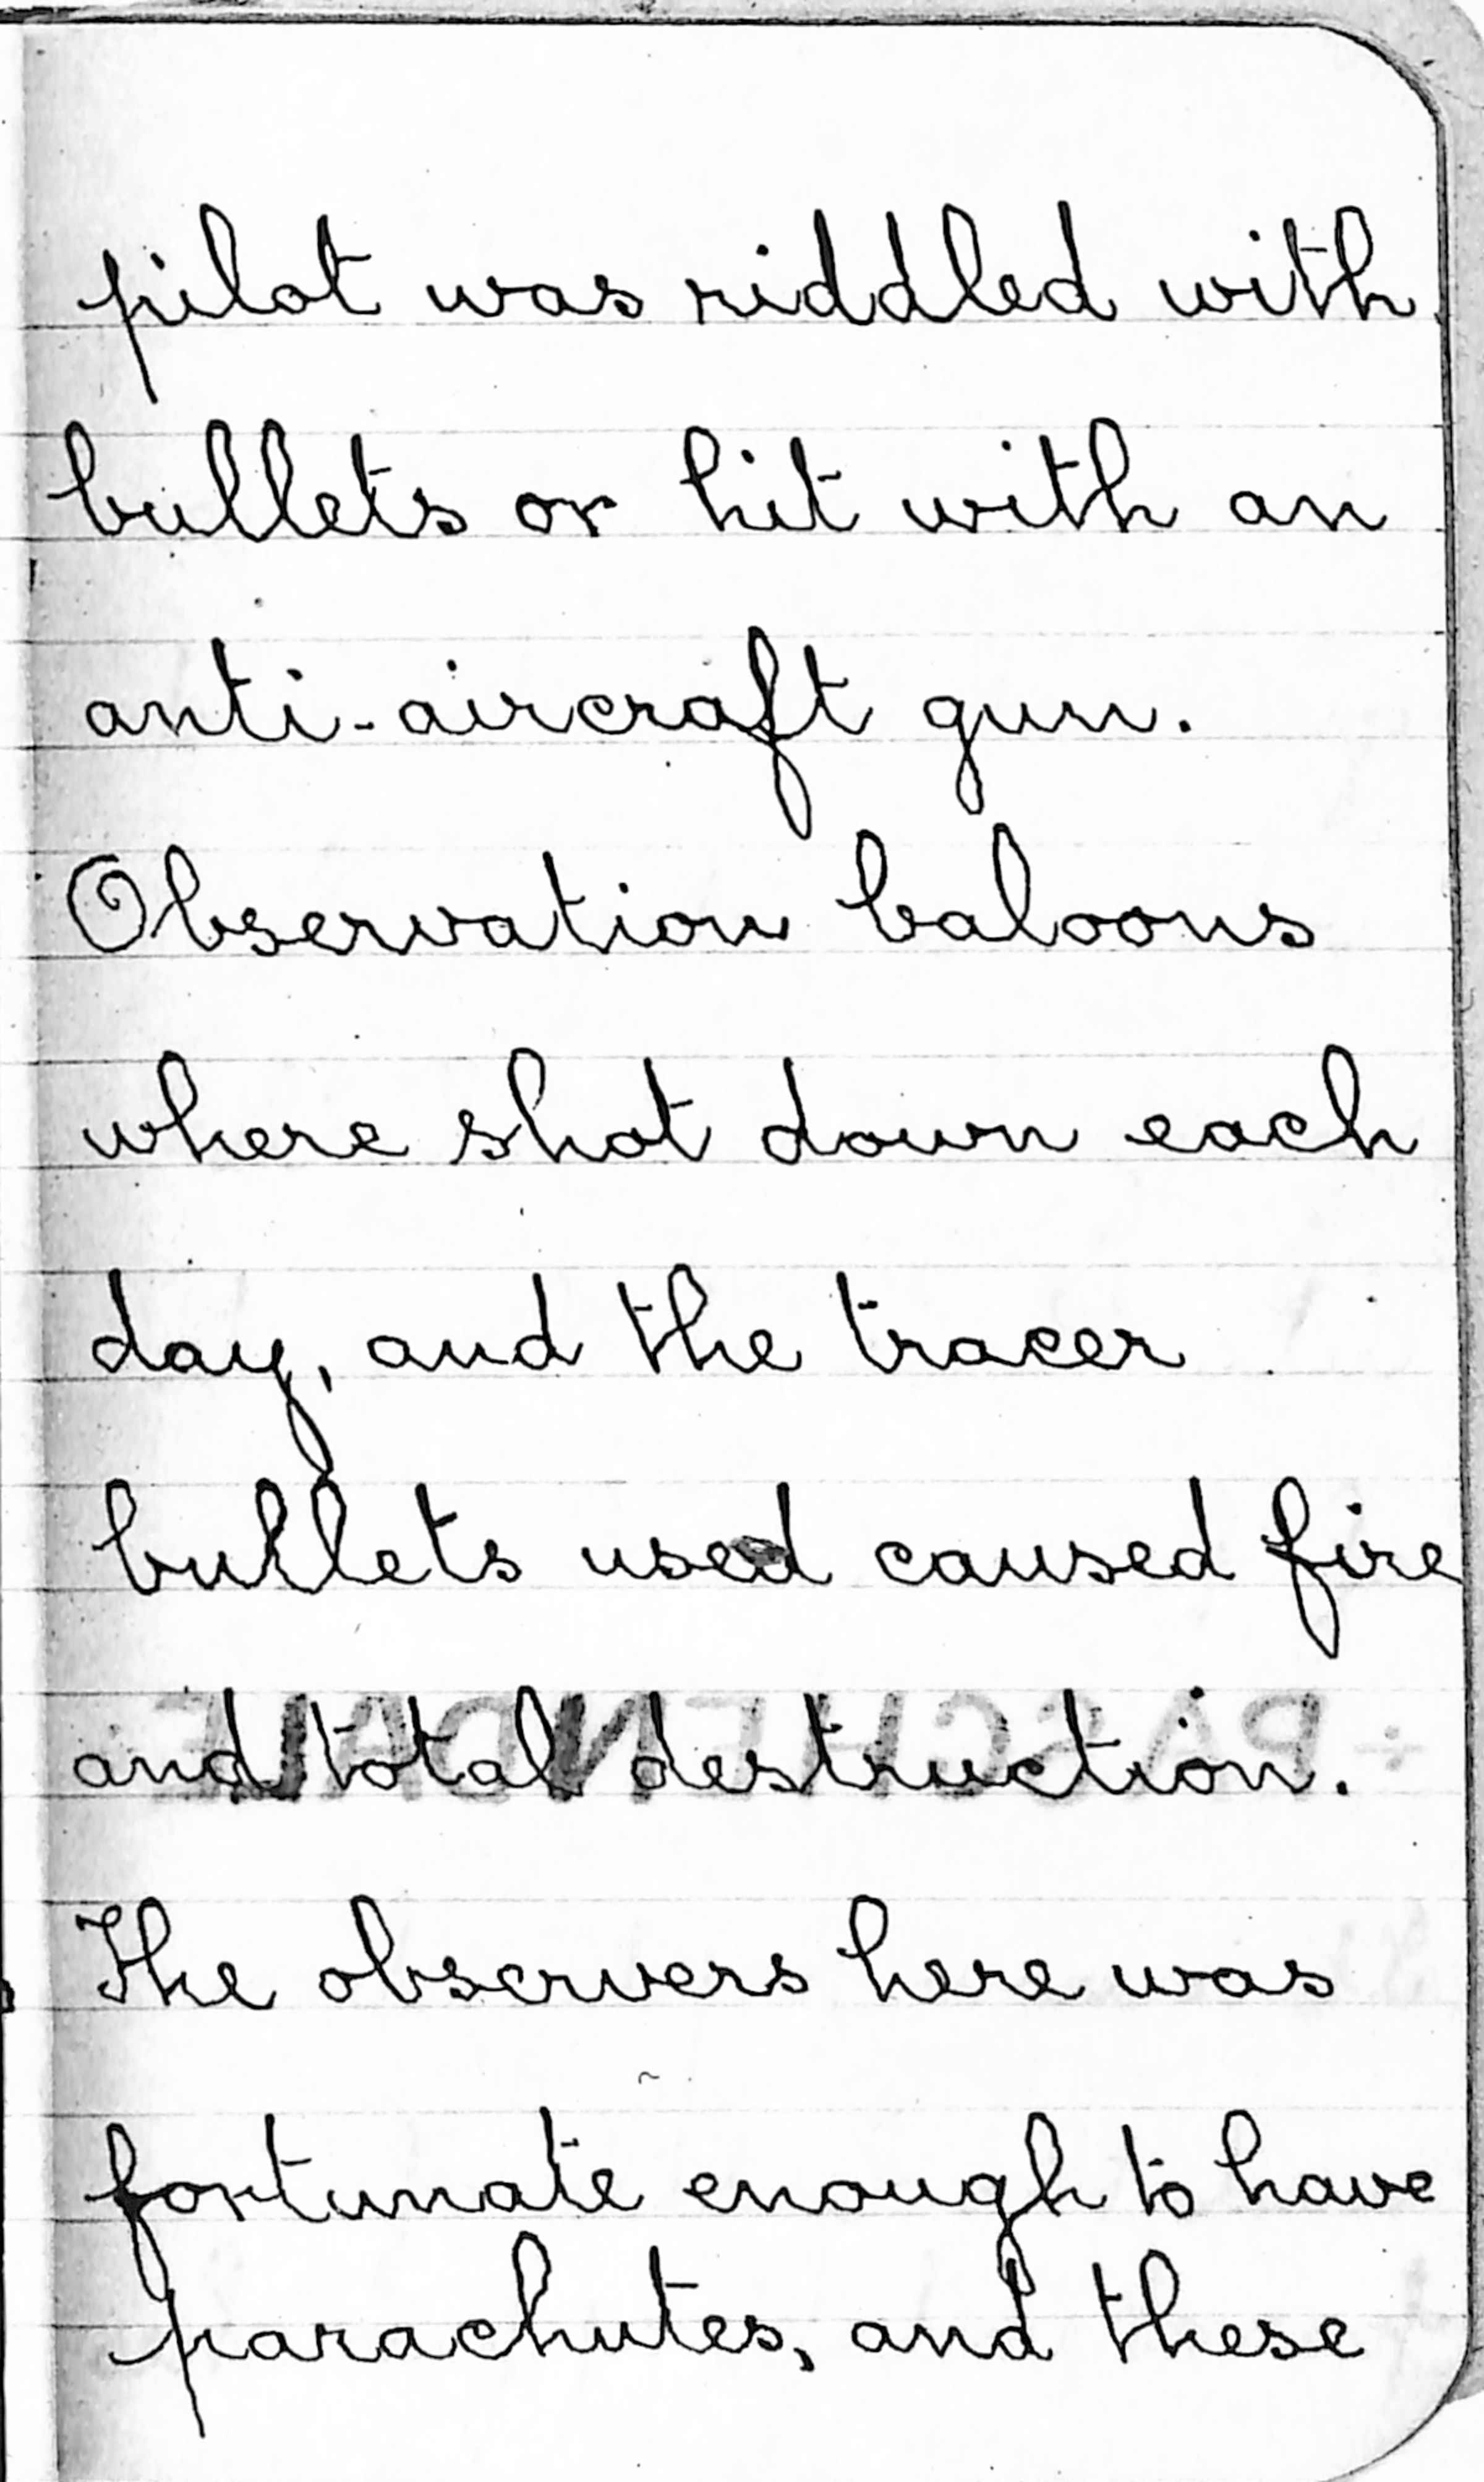 pilot was riddled with
bullets or hit with an
anti-aircraft gun.
Observation baloons
where shot down each
day, and the tracer
bullets used caused fire
and total destruction.
The observers here was
fortunate enough to have
parachutes, and these